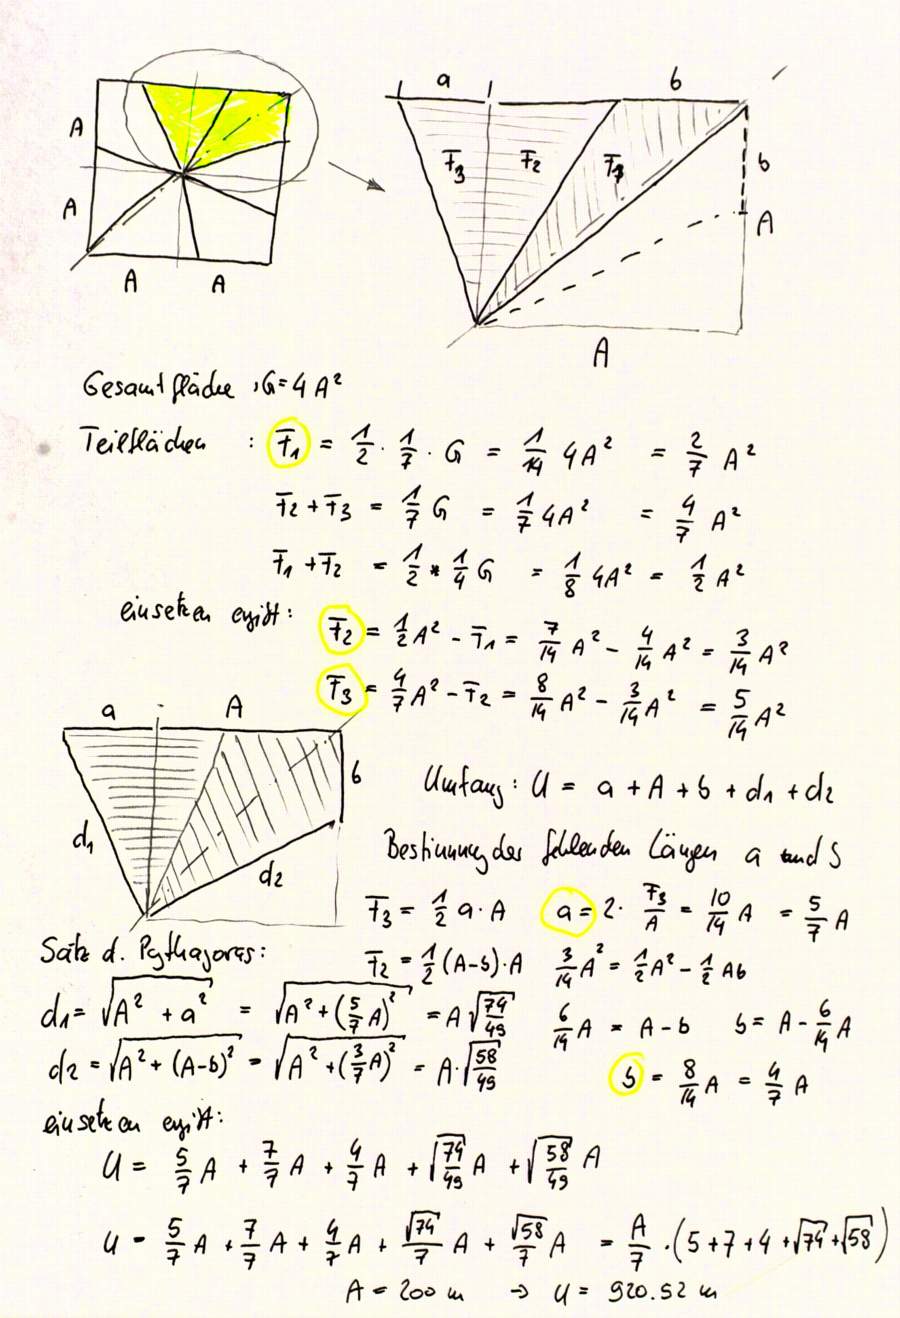 a b
A A
F₃ F₂ F₁ b
A
A A
A
Gesamtfläche : G = 4A²
Teilflächen : F₁ = 1/2 · 1/7 · G = 1/14 4A² = 2/7 A²
F₂ + F₃ = 1/7 G = 1/7 4A² = 4/7 A²
F₁ + F₂ = 1/2 * 1/4 G = 1/8 4A² = 1/2 A²
einsetzen ergibt: F₂ = 1/2 A² - F₁ = 7/14 A² - 4/14 A² = 3/14 A²
F₃ = 4/7 A² - F₂ = 8/14 A² - 3/14 A² = 5/14 A²
a A
b
d₁ d₂
Umfang: U = a + A + b + d₁ + d₂
Bestimmung der fehlenden Längen a und b
F₃ = 1/2 a · A a = 2 · F₃/A = 10/14 A = 5/7 A
F₂ = 1/2 (A-b) · A 3/14 A² = 1/2 A² - 1/2 Ab
6/14 A = A - b b = A - 6/14 A
b = 8/14 A = 4/7 A
Satz d. Pythagoras:
d₁ = √(A² + a²) = √(A² + (5/7 A)²) = A √(74/49)
d₂ = √(A² + (A-b)²) = √(A² + (3/7 A)²) = A · √(58/49)
einsetzen ergibt:
U = 5/7 A + 7/7 A + 4/7 A + √(74/49) A + √(58/49) A
U = 5/7 A + 7/7 A + 4/7 A + √74/7 A + √58/7 A = A/7 · (5 + 7 + 4 + √74 + √58)
A = 200 m → U = 920.52 m